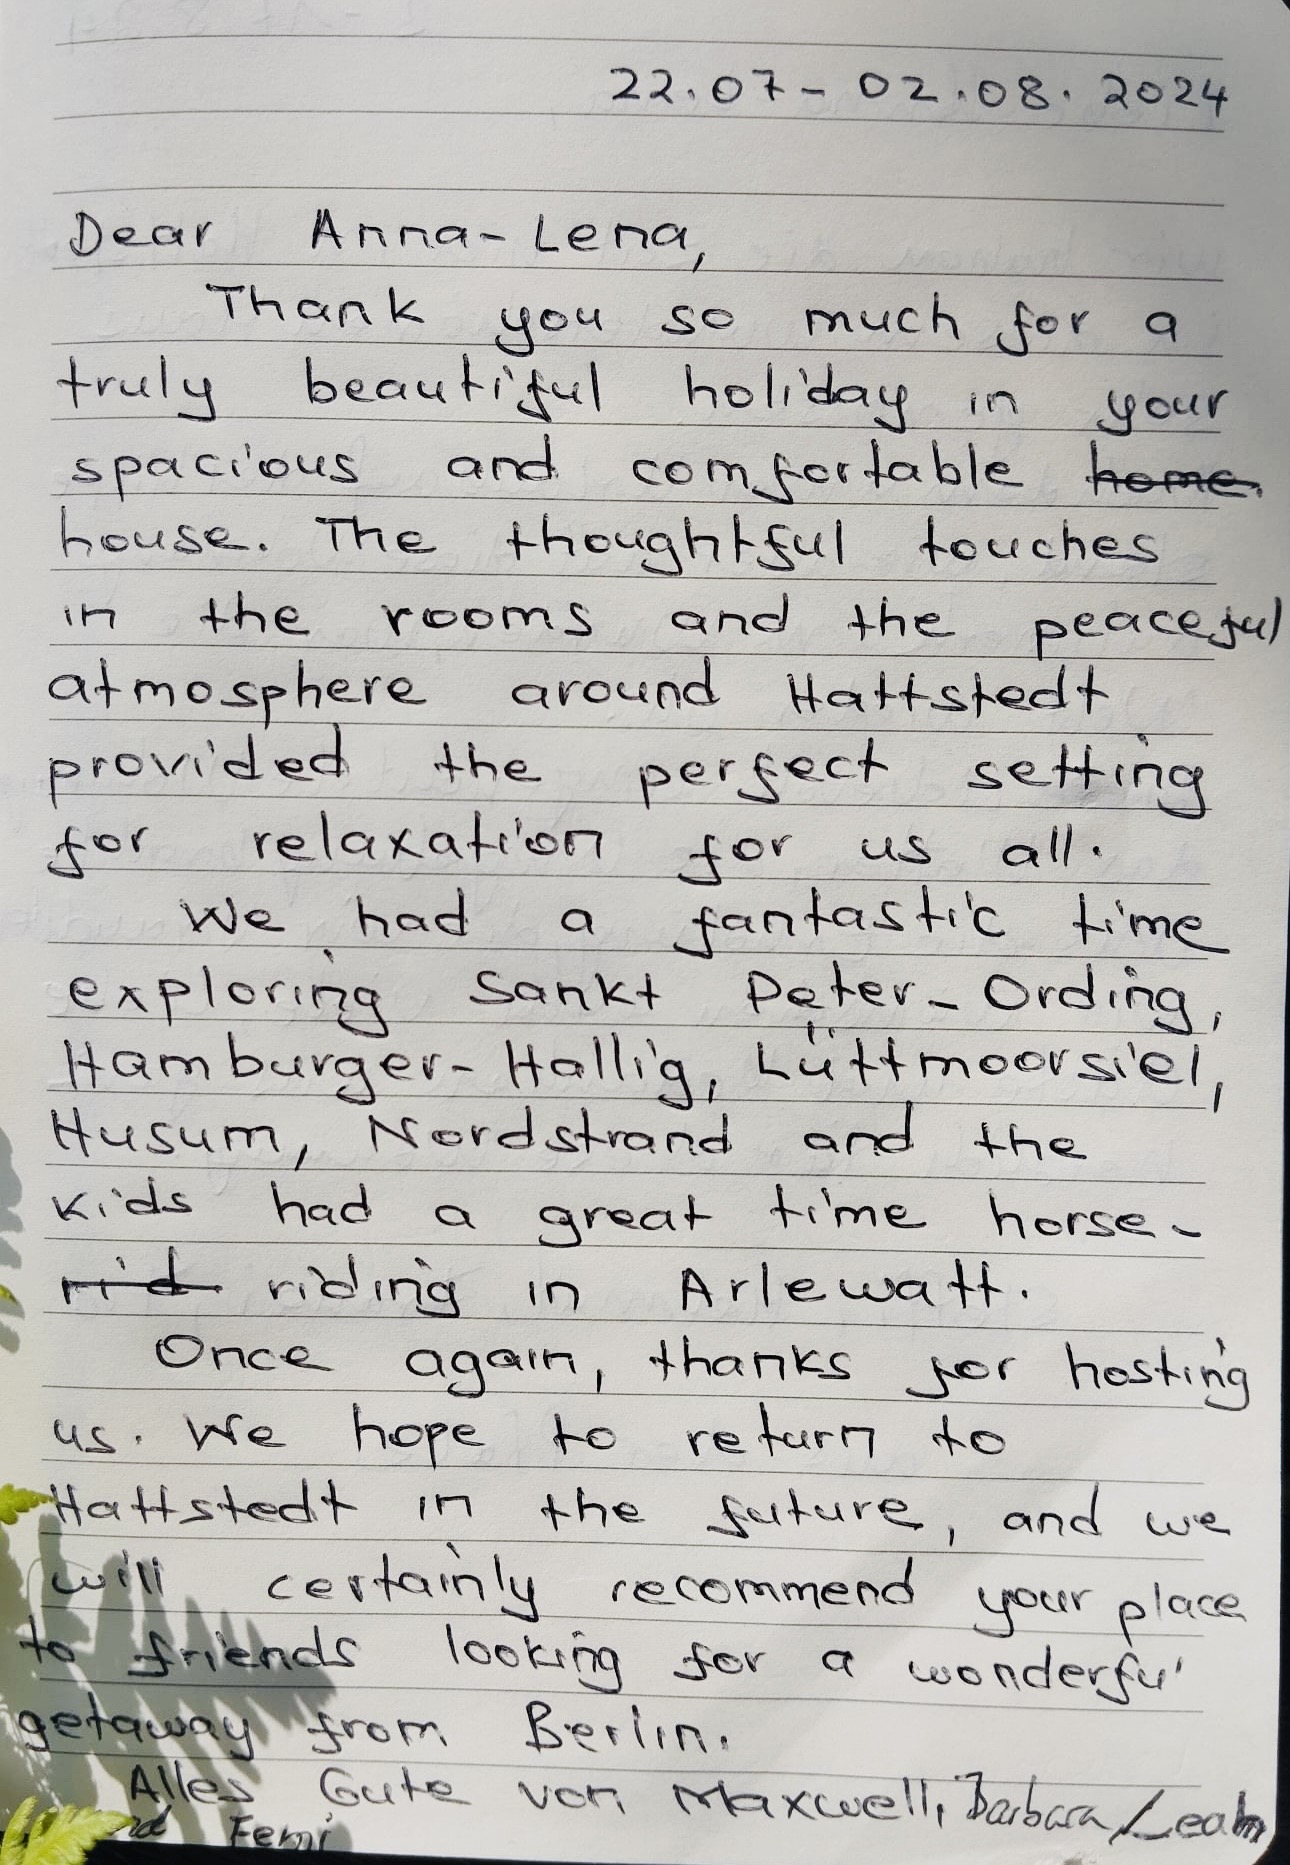 22.07 - 02.08. 2024
Dear Anna-Lena,
Thank you so much for a
truly beautiful holiday in your
spacious and comfortable home.
house. The thoughtful touches
in the rooms and the peaceful
atmosphere around Hattstedt
provided the perfect setting
for relaxation for us all.
We had a fantastic time
exploring Sankt Peter-Ording,
Hamburger-Hallig, Lüttmoorsiel,
Husum, Nordstrand and the
kids had a great time horse-
rid riding in Arlewatt.
Once again, thanks for hosting
us. We hope to return to
Hattstedt in the future, and we
will certainly recommend your place
to friends looking for a wonderful
getaway from Berlin.
Alles Gute von Maxwell, Barbara, Leah
Femi